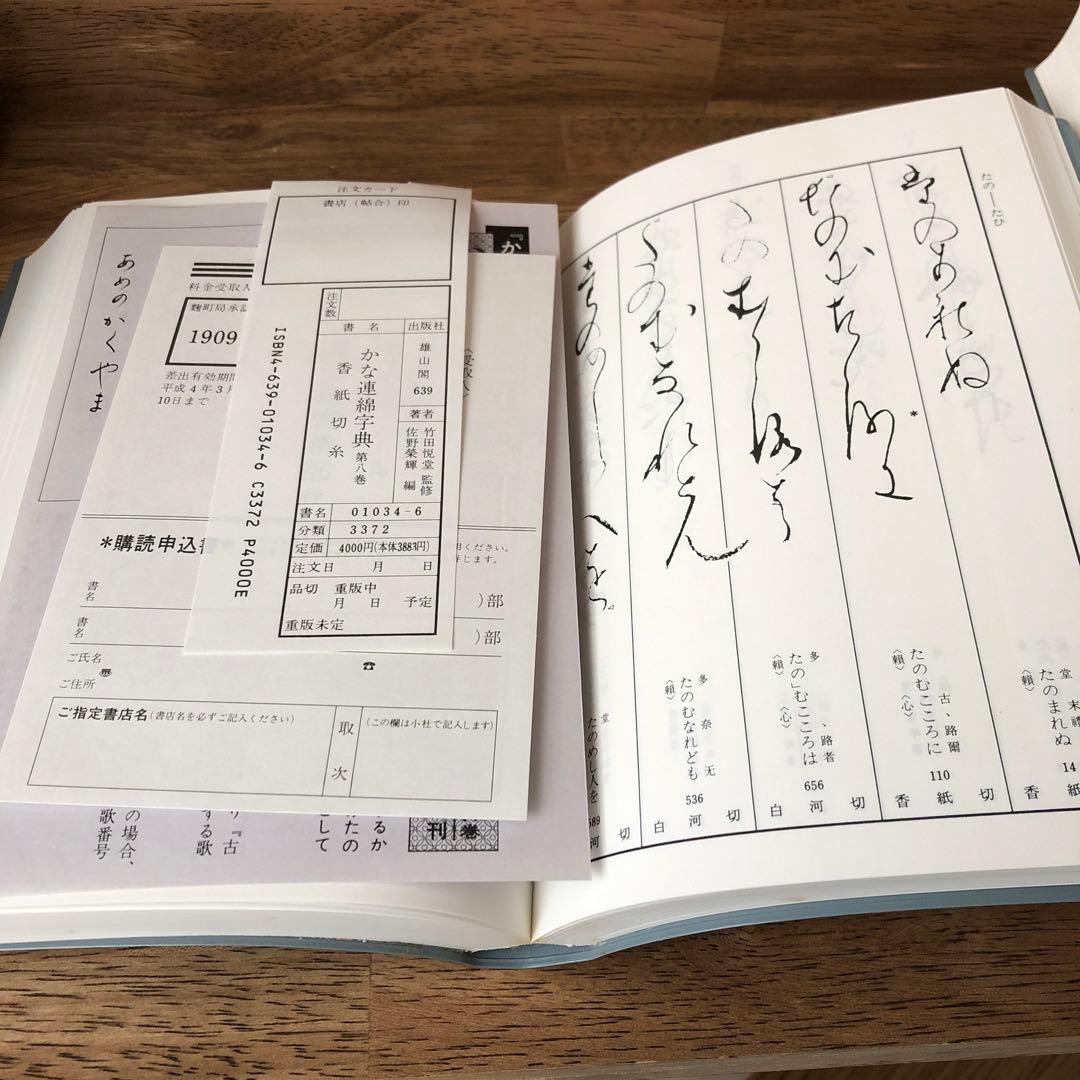 注文カード
書店（帖合）印
注文数
書名
かな連綿字典 第八巻
香紙切 糸
出版社
雄山閣
639
著者
竹田悦堂 監修
佐野榮輝 編
書名 01034-6
分類 3372
定価 4000円(本体3883円)
注文日 月 日
品切 重版中
月 日 予定
重版未定
ISBN4-639-01034-6 C3372 P4000E
『か
あめのかくやま
料金受取人
麹町局承認
1909
差出有効期間
平成4年3月
10日まで
〈受取人〉
*購読申込書
用ください。
じます。
書名
)部
書名
)部
ご氏名
ご住所
☎
ご指定書店名(書店名を必ずご記入ください)
取次
(この欄は小社で記入します)
るか
たの
して
『古
する歌
の場合、
歌番号
刊
巻
たの―たひ
堂 末禮
たのまれぬ
〈頼〉
14
香紙
古、路爾
たのむこころに
〈頼〉 〈心〉
110
香紙切
*
多 、路者
たの」むこころは
〈頼〉 〈心〉
656
白河切
多 奈 无
たのむなれども
〈頼〉
536
白河切
堂
たのめし人を
589
河切